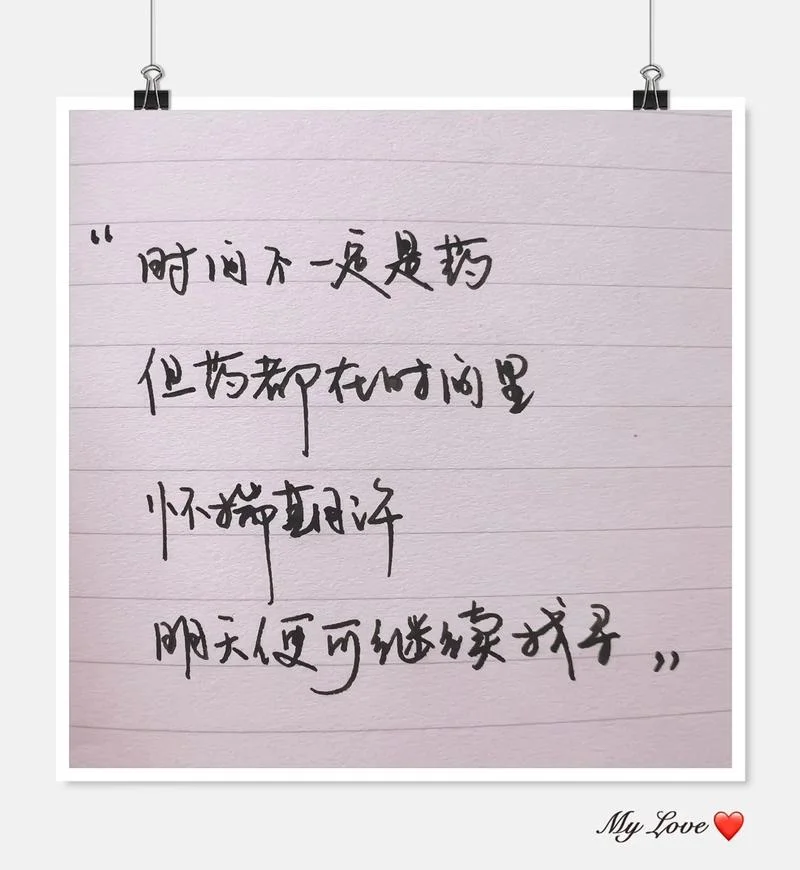 “时间不一定是药
但药都在时间里
怀揣期许
明天便可继续找寻”
My Love❤️